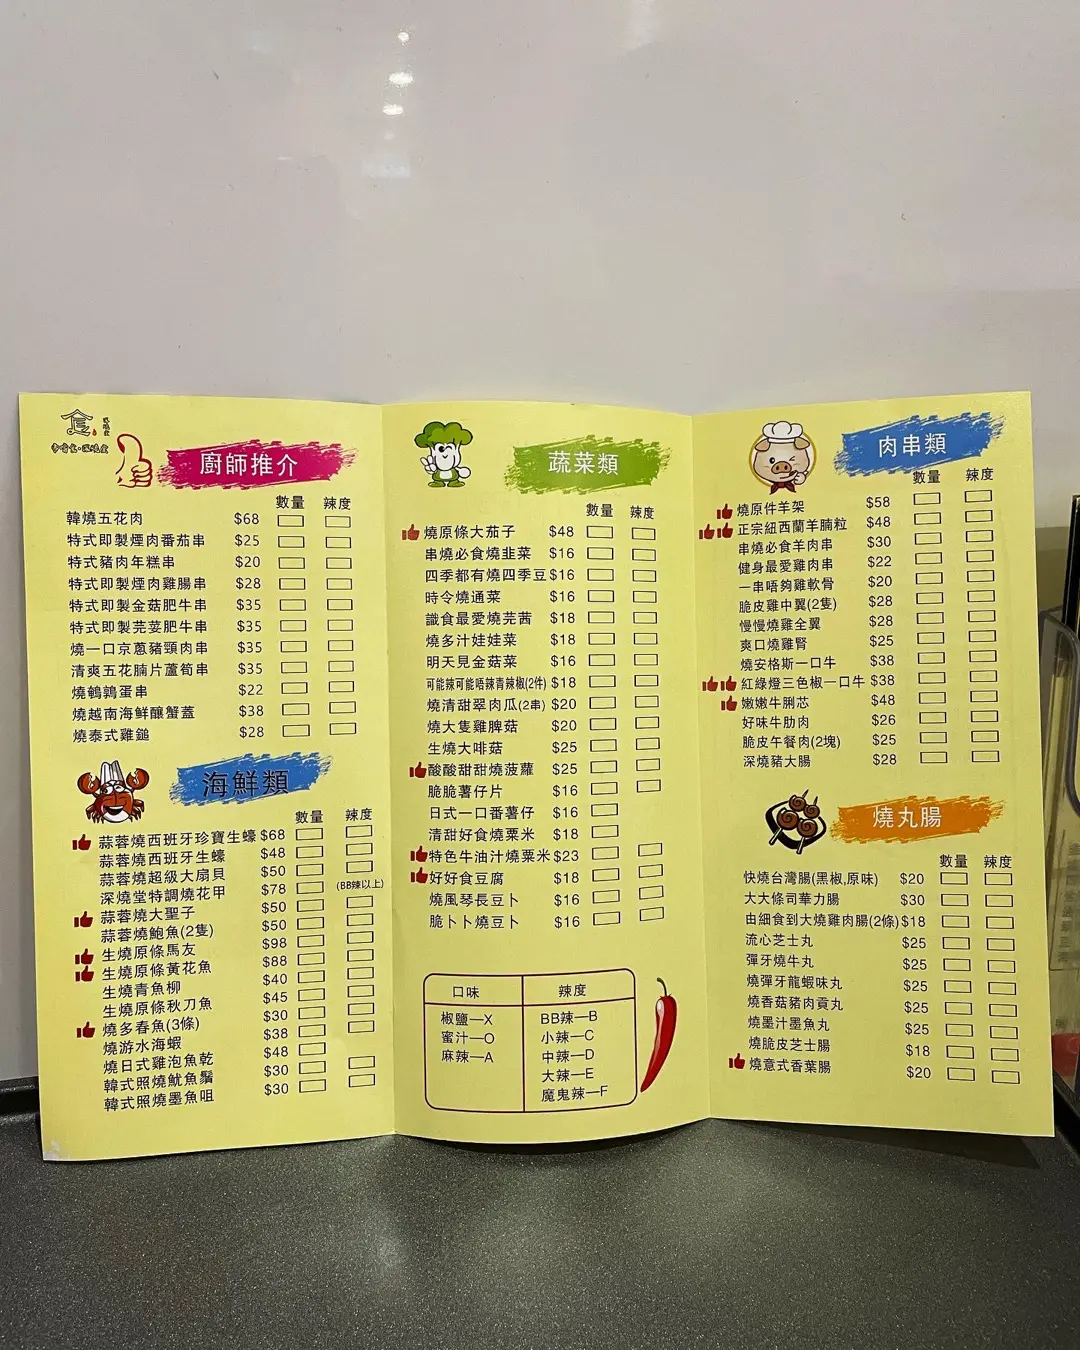 廚師推介
數量 辣度
韓燒五花肉 $68
特式即製煙肉番茄串 $25
特式豬肉年糕串 $20
特式即製煙肉雞腸串 $28
特式即製金菇肥牛串 $35
特式即製芫荽肥牛串 $35
燒一口京蔥豬頸肉串 $35
清爽五花腩片蘆筍串 $35
燒鵪鶉蛋串 $22
燒越南海鮮釀蟹蓋 $38
燒泰式雞鎚 $28
海鮮類
數量 辣度
蒜蓉燒西班牙珍寶生蠔 $68
蒜蓉燒西班牙生蠔 $48
蒜蓉燒超級大扇貝 $50
深燒堂特調燒花甲 $78 (BB辣以上)
蒜蓉燒大聖子 $50
蒜蓉燒鮑魚(2隻) $50
生燒原條馬友 $98
生燒原條黃花魚 $88
生燒青魚柳 $40
生燒原條秋刀魚 $45
燒多春魚(3條) $30
燒游水海蝦 $38
燒日式雞泡魚乾 $48
韓式照燒魷魚鬚 $30
韓式照燒墨魚咀 $30
蔬菜類
數量 辣度
燒原條大茄子 $48
串燒必食燒韭菜 $16
四季都有燒四季豆 $16
時令燒通菜 $16
識食最愛燒芫茜 $18
燒多汁娃娃菜 $18
明天見金菇菜 $16
可能辣可能唔辣青辣椒(2件) $18
燒清甜翠肉瓜(2串) $20
燒大隻雞脾菇 $20
生燒大啡菇 $25
酸酸甜甜燒菠蘿 $25
脆脆薯仔片 $16
日式一口番薯仔 $16
清甜好食燒粟米 $18
特色牛油汁燒粟米 $23
好好食豆腐 $18
燒風琴長豆卜 $16
脆卜卜燒豆卜 $16
口味 辣度
椒鹽—X BB辣—B
蜜汁—O 小辣—C
麻辣—A 中辣—D
大辣—E
魔鬼辣—F
肉串類
數量 辣度
燒原件羊架 $58
正宗紐西蘭羊腩粒 $48
串燒必食羊肉串 $30
健身最愛雞肉串 $22
一串唔夠雞軟骨 $20
脆皮雞中翼(2隻) $28
慢慢燒雞全翼 $28
爽口燒雞腎 $25
燒安格斯一口牛 $38
紅綠燈三色椒一口牛 $38
嫩嫩牛脷芯 $48
好味牛肋肉 $26
脆皮午餐肉(2塊) $25
深燒豬大腸 $28
燒丸腸
數量 辣度
快燒台灣腸(黑椒,原味) $20
大大條司華力腸 $30
由細食到大燒雞肉腸(2條) $18
流心芝士丸 $25
彈牙燒牛丸 $25
燒彈牙龍蝦味丸 $25
燒香菇豬肉貢丸 $25
燒墨汁墨魚丸 $25
燒脆皮芝士腸 $18
燒意式香葉腸 $20